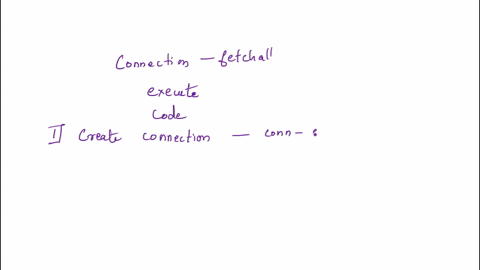 Connection - fetchall
execute
code
1] Create connection - conn - s